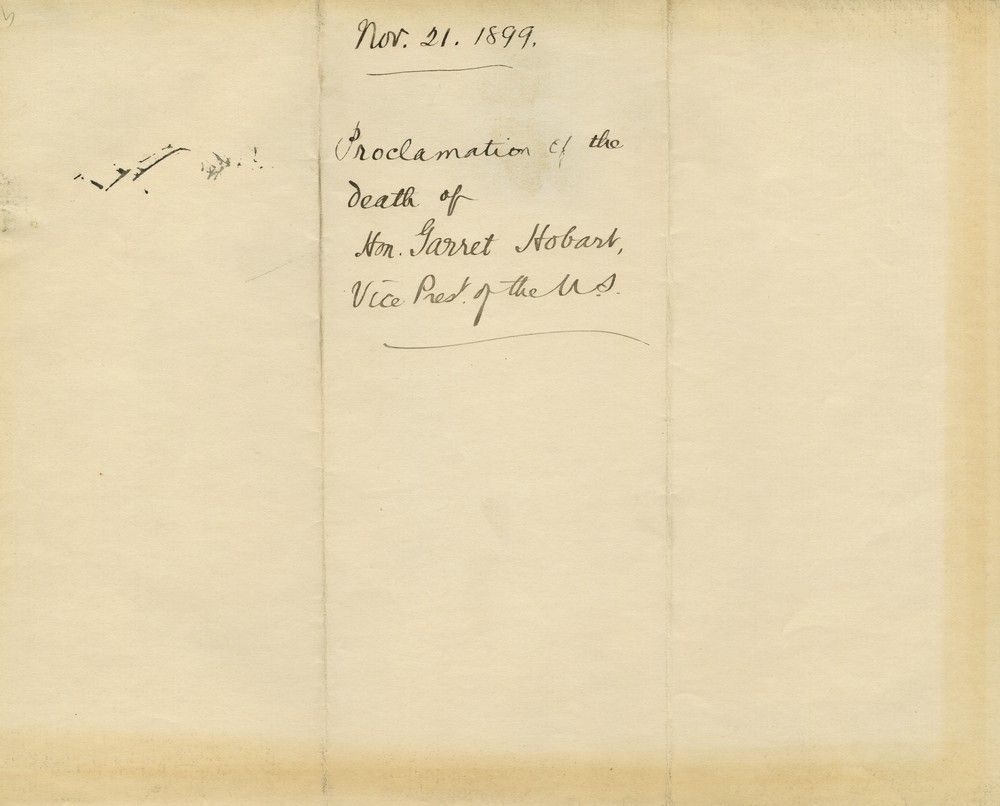 Nov. 21. 1899.
Proclamation of the
death of
Hon. Garret Hobart,
Vice Prest. of the U.S.